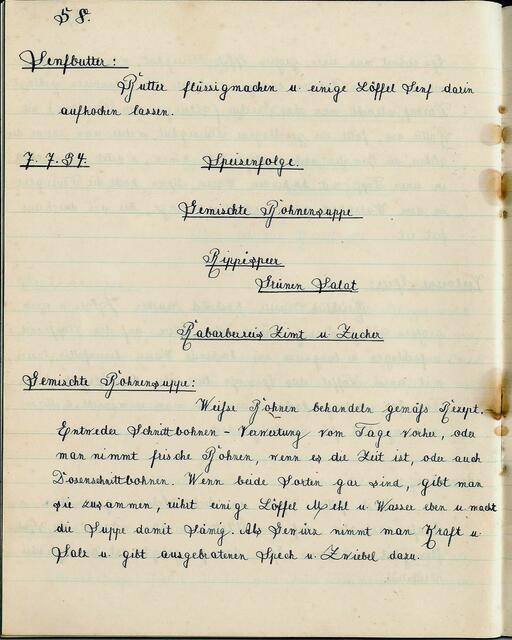 58.
Senfbutter:
Butter flüssigmachen u. einige Löffel Senf darin
aufkochen lassen.
7. 7. 34. Speisenfolge
Gemischte Bohnensuppe
Rippespeer
Grünen Salat
Rabarbereis Zimt u Zucker
Gemischte Bohnensuppe:
Weiße Bohnen behandeln gemäß Rezept.
Entweder Schnittbohnen - Verwertung vom Tage vorher, oder
man nimmt frische Bohnen, wenn es die Zeit ist, oder auch
Dosenschnittbohnen. Wenn beide Sorten gar sind, gibt man
sie zusammen, rührt einige Löffel Mehl u. Wasser eben u. macht
die Suppe damit sämig. Als Gewürz nimmt man Kraft u.
Salz u. gibt ausgebratenen Speck u. Zwiebel dazu.